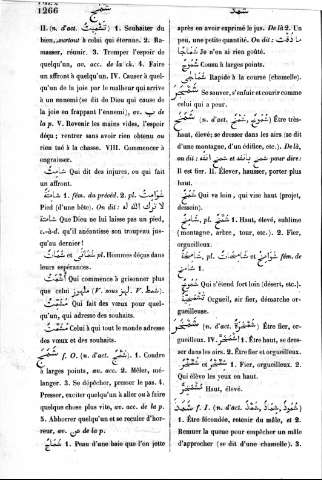 1266
شمج
شمذ
II. (n. d'act. تَشْمِيتٌ) 1. Souhaiter du
bien, surtout à celui qui éternue. 2. Ra-
masser, réunir. 3. Tromper l'espoir de
quelqu'un, av. acc. de la ch. 4. Faire
un affront à quelqu'un. IV. Causer à quel-
qu'un de la joie par le malheur qui arrive
à un ennemi (se dit de Dieu qui cause de
la joie en frappant l'ennemi), av. ب de
la p. V. Revenir les mains vides, l'espoir
déçu; rentrer sans avoir rien obtenu ou
rien tué à la chasse. VIII. Commencer à
engraisser.
شَامِتٌ Qui dit des injures, ou qui fait
un affront.
شَامِتَةٌ 1. fém. du précéd. 2. pl. شَوَامِتُ
Pied (d'une bête). On dit : لا ترك الله له
شامتة Que Dieu ne lui laisse pas un pied,
c.-à-d. qu'il anéantisse son troupeau jus-
qu'au dernier!
pl. Hommes déçus dans
leurs espérances.
Qui commence à grisonner plus
que celui
مُشَمِّتٌ Qui fait des vœux pour quel-
qu'un, qui adresse des souhaits.
مُشَمَّتٌ Celui à qui tout le monde adresse
des vœux et des souhaits.
شَمَجَ f. O. (n. d'act. شَمْجٌ) 1. Coudre
à larges points, av. acc. 2. Mêler, mé-
langer. 3. Se dépêcher, presser le pas. 4.
Presser, exciter quelqu'un à aller ou à faire
quelque chose plus vite, av. acc. de la p.
5. Abhorrer quelqu'un et se reculer d'hor-
reur, av. من de la p.
شَمَاجٌ 1. Peau d'une baie que l'on jette
après en avoir exprimé le jus. De là 2. Un
peu, une petite quantité. On dit : ما ذقت
شماجا Je n'en ai rien goûté.
شَمُوجٌ Cousu à larges points.
شَمَجَى Rapide à la course (chamelle).
Se sauver, s'enfuir et courir comme
celui qui a peur.
شَمَخَ (n. d'act. شَمْخٌ, شُمُوخٌ) Être très-
haut, élevé; se dresser dans les airs (se dit
d'une montagne, d'un édifice, etc.). De là
on dit : شمخ بأنفه et شمخ أنفه pour dire :
Il est fier. II. Élever, hausser, porter plus
haut.
Qui va loin, qui vise haut (projet,
dessein).
شَامِخٌ, pl. شُمَّخٌ 1. Haut, élevé, sublime
(montagne, arbre, tour, etc.). 2. Fier,
orgueilleux.
شَامِخَةٌ, pl. شَامِخَاتٌ et شَوَامِخُ fém. de
شامخ 1.
شَمُوخٌ Qui s'étend fort loin (désert, etc.).
Orgueil, air fier, démarche or-
gueilleuse.
(n. d'act.) Être fier, or-
gueilleux. IV. 1. Être haut, se dres-
ser dans les airs. 2. Être fier et orgueilleux.
et 1. Fier, orgueilleux. 2.
Qui élève les yeux en haut.
Haut, élevé.
شَمَذَ f. I. (n. d'act. شَمْذٌ, شِمَاذٌ, شُمُوذٌ)
1. Être fécondée, retenir du mâle, et 2.
Remuer la queue pour empêcher un mâle
d'approcher (se dit d'une chamelle). 3.